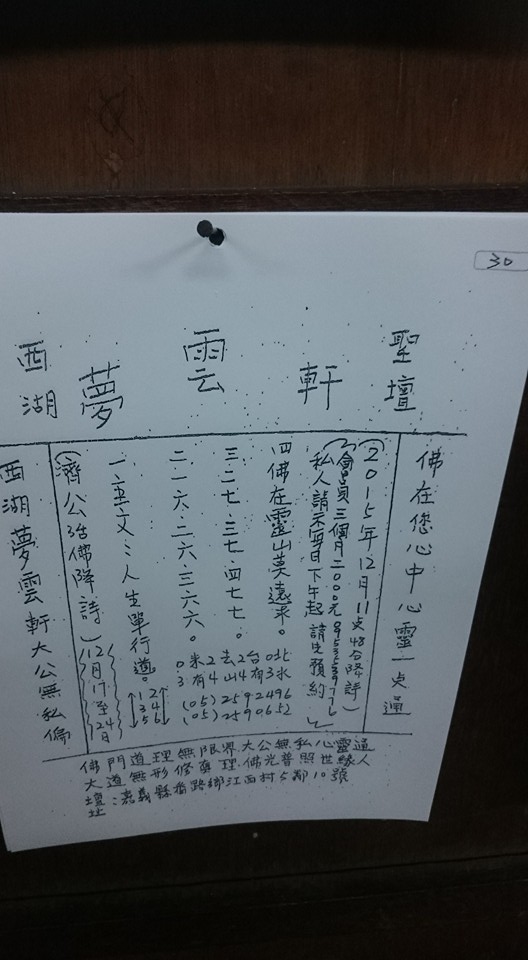 30
西湖 夢 雲 軒 聖壇
佛在您心中心靈一点通
(2015年12月11点48分降詩)
(會員三個月2000元
私人請示每日下午起請先預約)
四佛在靈山莫遠求。
三二七.三七.四七七。
二一六.二六.三六六。
一主文:人生單行道。
(濟公活佛降詩)12月17至24日
西湖夢雲軒大公無私偏
(05)2592496
(05)2590652
佛門道理無限界大公無私心靈通
大道無形修真理.佛光普照世緣人
壇址:嘉義縣番路鄉江西村5鄰10號